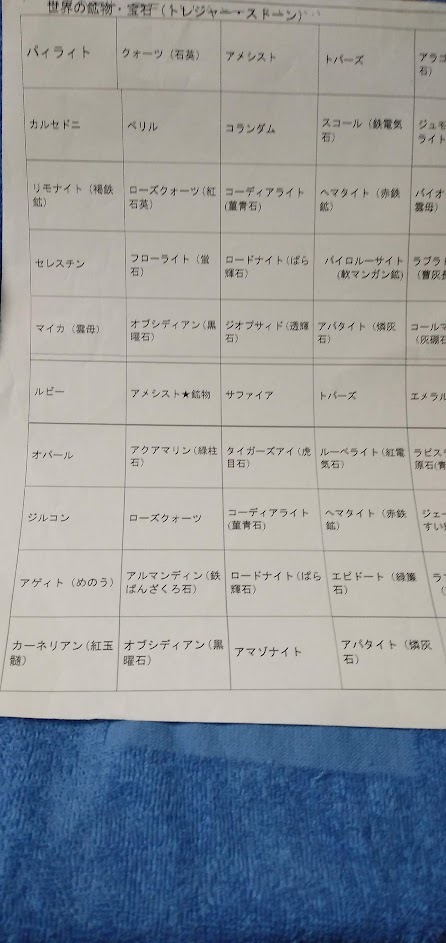 世界の鉱物・宝石（トレジャー・ストーン）
パイライト
クォーツ（石英）
アメシスト
トパーズ
アラゴ
石）
カルセドニ
ベリル
コランダム
スコール（鉄電気
石）
ジュモ
ライト
リモナイト（褐鉄
鉱）
ローズクォーツ（紅
石英）
コーディアライト
(菫青石)
ヘマタイト（赤鉄
鉱）
バイオ
雲母）
セレスチン
フローライト（蛍
石）
ロードナイト（ばら
輝石）
パイロルーサイト
(軟マンガン鉱)
ラブラト
（曹灰長
マイカ（雲母）
オブシディアン（黒
曜石）
ジオプサイド（透輝
石）
アパタイト（燐灰
石）
コールマ
（灰硼石
ルビー
アメシスト★鉱物
サファイア
トパーズ
エメラル
オパール
アクアマリン（緑柱
石）
タイガーズアイ（虎
目石）
ルーベライト（紅電
気石）
ラピスラ
原石(青
ジルコン
ローズクォーツ
コーディアライト
(菫青石)
ヘマタイト（赤鉄
鉱）
ジェー
すい
アゲイト（めのう）
アルマンディン（鉄
ばんざくろ石）
ロードナイト（ばら
輝石）
エピドート（緑簾
石）
ラ
カーネリアン（紅玉
髄）
オブシディアン（黒
曜石）
アマゾナイト
アパタイト（燐灰
石）